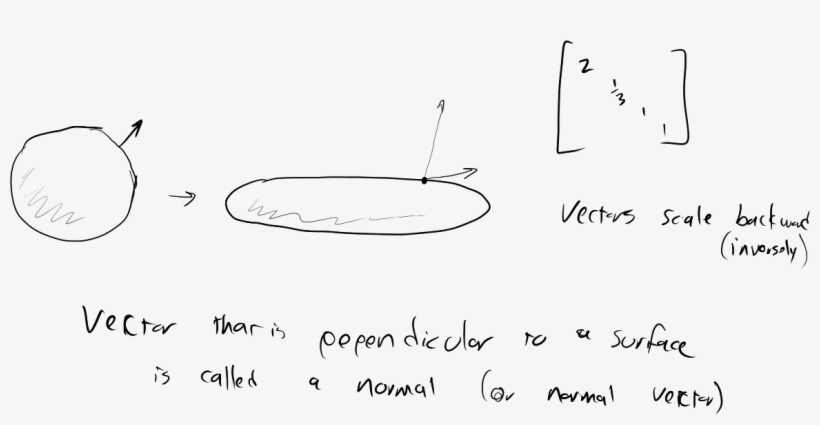 2
1/3
1
1
Vectors scale backward
(inversely)
Vector that is pependicular to a surface
is called a normal (or normal vector)